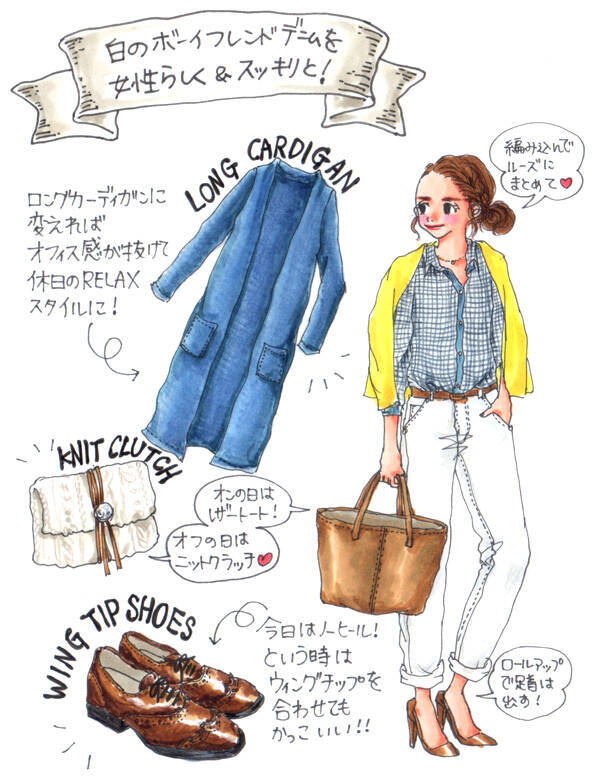 白のボーイフレンドデニムを
女性らしく&スッキリと!
LONG CARDIGAN
ロングカーディガンに
変えれば
オフィス感が抜けて
休日のRELAX
スタイルに!
編み込んで
ルーズに
まとめて♥
KNIT CLUTCH
オンの日は
レザートート!
オフの日は
ニットクラッチ♥
WING TIP SHOES
今日はノーヒール!
という時は
ウィングチップを
合わせても
かっこいい!!
ロールアップ
で足首は
出す!